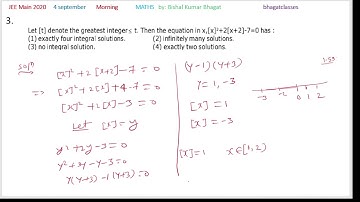 JEE Main 2020 4 september Morning MATHS by: Bishal Kumar Bhagat bhagatclasses
3.
Let [t] denote the greatest integer ≤ t. Then the equation in x,[x]²+2[x+2]-7=0 has :
(1) exactly four integral solutions. (2) infinitely many solutions.
(3) no integral solution. (4) exactly two solutions.
Solⁿ
[x]²+2[x+2]-7=0
⇒ [x]²+2[x]+4-7=0
[x]²+2[x]-3=0
Let [x]=y
y²+2y-3=0
y²+3y-y-3=0
y(y+3)-1(y+3)=0
(y-1)(y+3)
y=1,-3
[x]=1
[x]=-3
[x]=1 x∈[1,2)
1.53
-3 -2 0 1 2